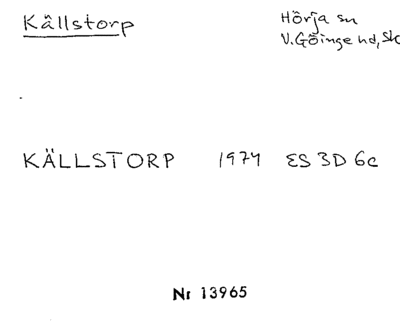 Källstorp
Hörja sn
V.Göinge hd, Sk
KÄLLSTORP 1974 ES 3D 6c
Nr 13965